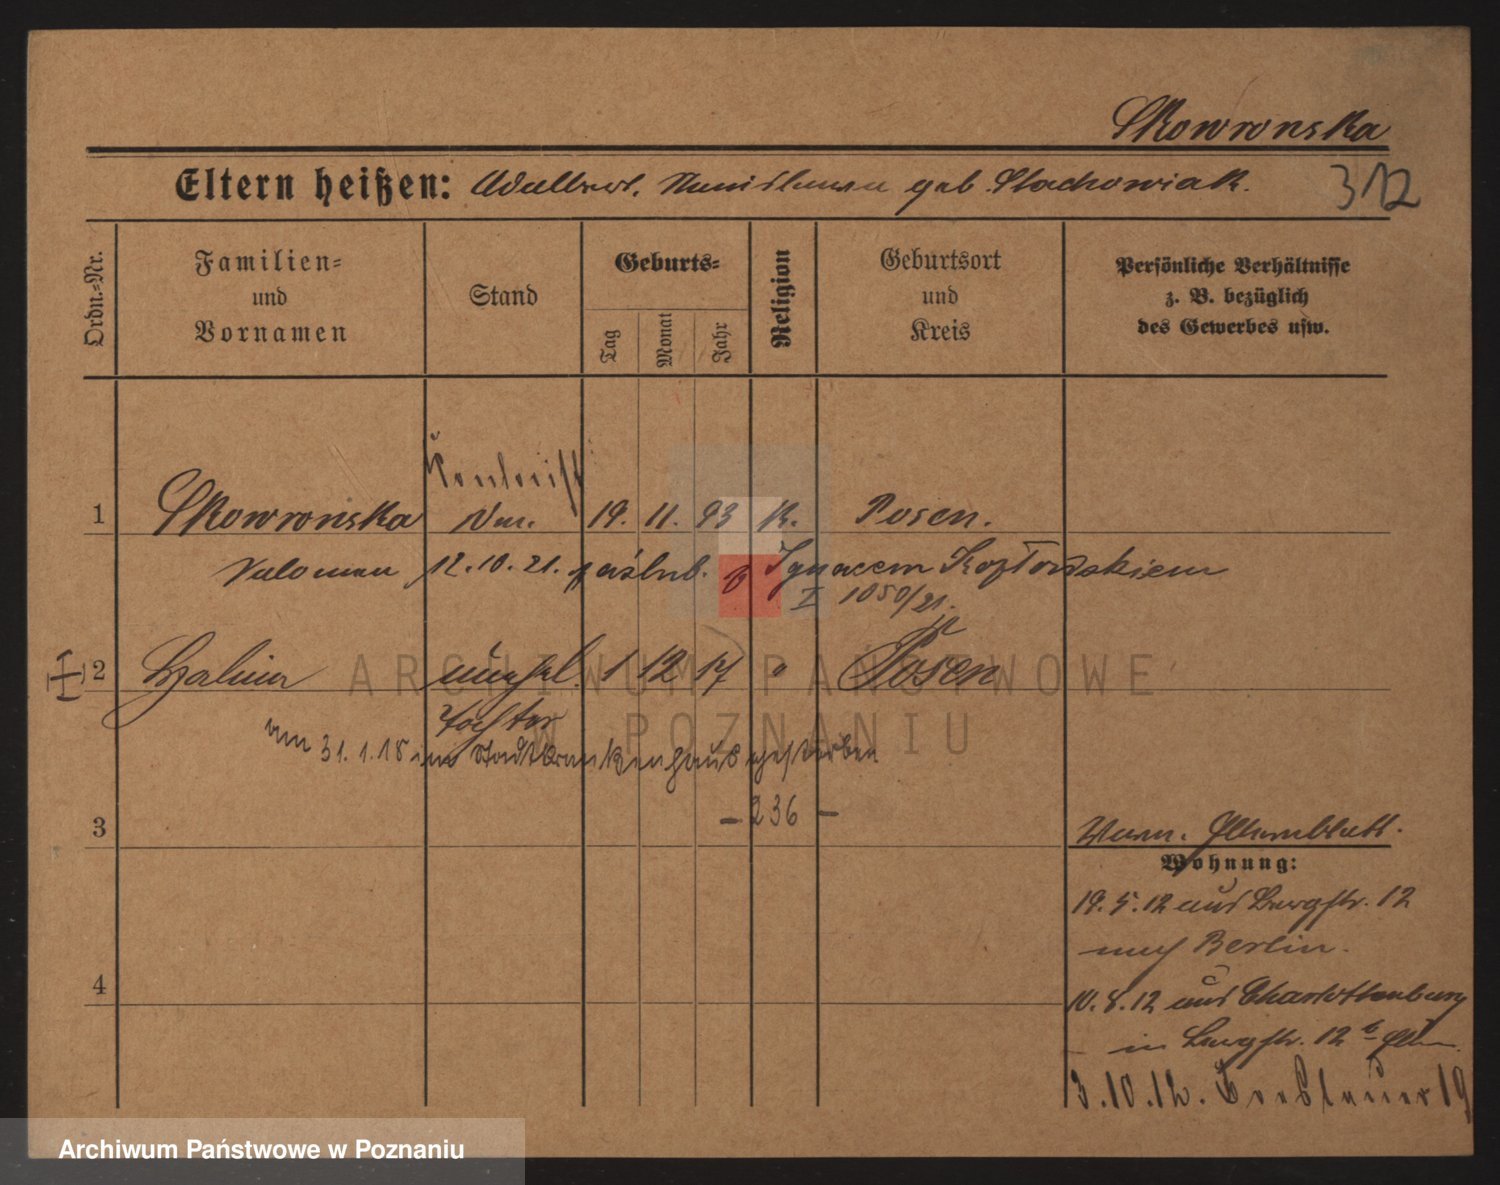 Skowronska
Eltern heißen: Adalbert. Stanislawa geb. Stachowiak.
312
Ordn.-Nr.
Familien-
und
Vornamen
Stand
Geburts-
Tag
Monat
Jahr
Religion
Geburtsort
und
Kreis
Persönliche Verhältnisse
z. B. bezüglich
des Gewerbes usw.
Kontorist
1 Skowronska 19. 11. 93 K. Posen.
Salomea 12.10.21. zaślub. z Ignacem Kozłowskiem
I 1050/21.
2 Halina unehel. 1 12 17 " Posen
Tochter
am 31.1.18 im Stadtkrankenhaus gestorben
- 236 -
3
Elternblatt.
Wohnung:
19.5.12 aus Bergstr. 12
nach Berlin.
4
10.8.12 aus Charlottenburg
in Bergstr. 12 b
3.10.12. Breslauer 19
ARCHIWUM PAŃSTWOWE
W POZNANIU
Archiwum Państwowe w Poznaniu